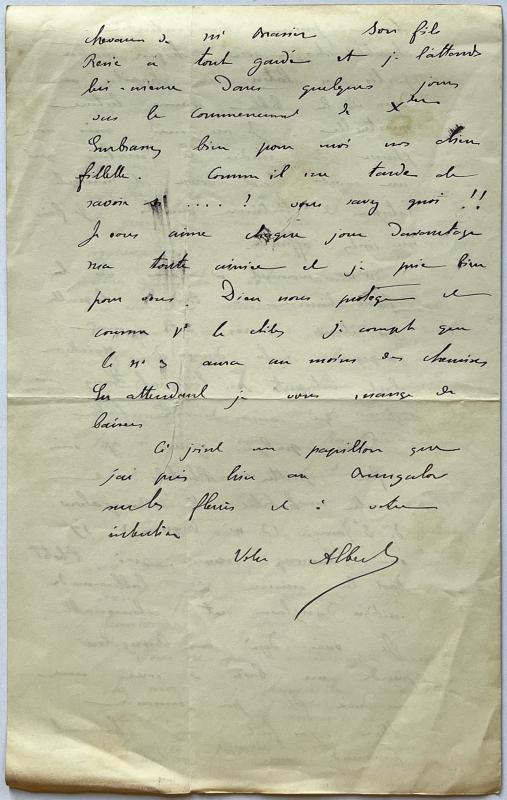 chevaux de Mr Son fils
René a tout gardé et je l'attends
lui-même dans quelques jours
vers le commencement de Xbre
Embrassez bien pour moi nos chère
fillette. Comme il me tarde de
savoir si ....? vous savez quoi !!
Je vous aime chaque jour davantage
ma toute aimée et je prie bien
pour vous. Dieu nous protège et
comme vs le dites je compte que
le no 3 aura au moins des chemises
En attendant je vous mange de
baisers
Ci joint un papillon que
j'ai pris hier au
sur les fleurs et à votre
intention
Votre Albert